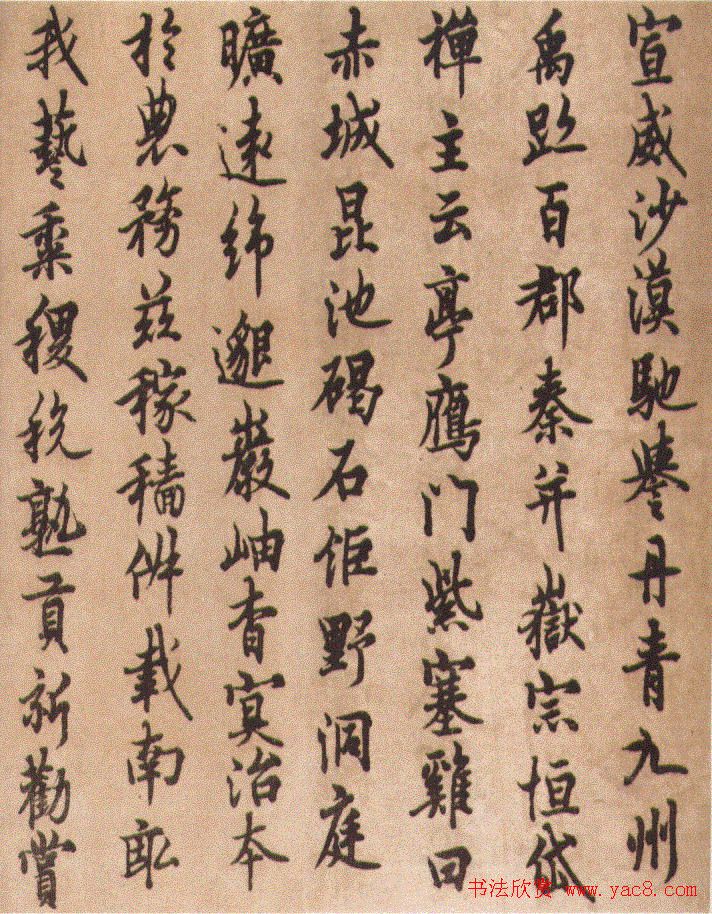 宣威沙漠馳譽丹青九州
禹跡百郡秦并嶽宗恒岱
禪主云亭鴈门紫塞雞田
赤城昆池碣石鉅野洞庭
曠遠綿邈巖岫杳冥治本
於農務茲稼穡俶載南畝
我藝黍稷稅熟貢新勸賞
书法欣赏 www.yac8.com